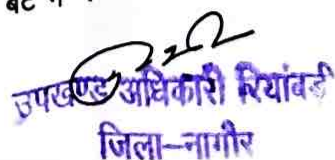 उपखण्ड अधिकारी रियांबड़ी
जिला-नागौर